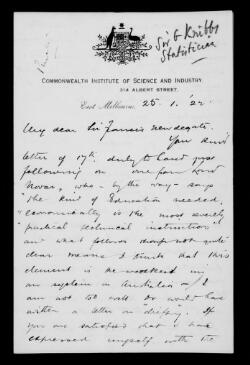 Private
Sir G Knibbs
Statistician
COMMONWEALTH INSTITUTE OF SCIENCE AND INDUSTRY.
314 ALBERT STREET,
East Melbourne, 25. 1. '22
My dear Sir Francis Newdegate.
Your kind
letter of 17th, duly to hand just
following on one from Lord
Novar, who – by the way – says
"The kind of Education needed,
economically is the most
"practical technical instruction"
and what follows
clear means I think that this
element is the weakest in
our system in Australia
am not too well
written a letter on
you are satisfied that I have
expressed myself with the